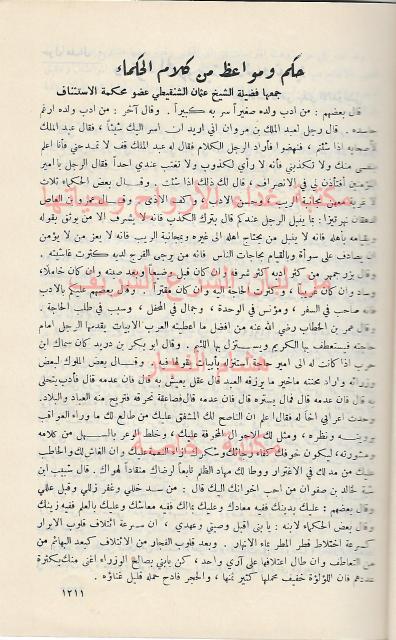 حكم ومواعظ من كلام الحكماء
جمعها فضيلة الشيخ عثمان الشنقيطي عضو محكمة الاستئناف
قال بعضهم : من ادب ولده صغيراً سر به كبيراً . وقال آخر : من ادب ولده ارغم
حاسده . قال رجل لعبد الملك بن مروان اني اريد ان اسر اليك شيئاً ، فقال عبد الملك
لأصحابه اذا شئتم ، فنهضوا فأراد الرجل الكلام فقال له عبد الملك قف لا تمدحني فأنا اعلم
بنفسي منك ولا تكذبني فأنه لا رأي لكذوب ولا تغتب عندي احداً فقال الرجل يا امير
المؤمنين أفتأذن لي في الانصراف ، قال لك ذلك اذا شئت . وقال بعض الحكماء ثلاث
لا غربة معهن مجانبة الريب وحسن الادب وكف الاذى . وقال عمرو بن العاص
لدهقان نهر تيرا : بما ينبل الرجل عندكم قال بترك الكذب فانه لا يشرف الا من يوثق بقوله
وبقيامه بأهله فانه لا ينبل من يحتاج اهله الى غيره وبمجانبة الريب فانه لا يعز من لا يؤمن
ان يصادف على سوأة وبالقيام بحاجات الناس فانه من رجى الفرج لديه كثرت غاشيته .
وقال بزرجمهر من كثر ادبه كثر شرفه وان كان قبل وضيعاً وبعد صيته وان كان خاملا،
وساد وان كان غريباً ، وكثرت الحاجة اليه وان كان فقيراً . وقال بعضهم عليكم بالادب
فانه صاحب في السفر ، ومؤنس في الوحدة ، وجمال في المحفل ، وسبب في طلب الحاجة .
وقال عمر بن الخطاب رضي الله عنه من افضل ما اعطيته العرب الابيات يقدمها الرجل امام
حاجته فيستعطف بها الكريم ويستنزل بها اللئيم . وقال ابو بكر بن دريد كان سماك ابن
حرب اذا كانت له الى امير حاجة استنزله بأبيات يقولها فيه . وقال بعض الملوك لبعض
وزرائه واراد محنته ماخير ما يرزقه العبد قال عقل يعيش به قال فان عدمه قال فأدب يتحلى
به قال فان عدمه قال فمال يستره قال فان عدمه قال فصاعقة تحرقه فتريح منه العباد والبلاد.
وحدث اعرابي اخاً له فقال اعلم ان الناصح لك المشفق عليك من طالع لك ما وراء العواقب
برويته ونظره ، ومثل لك الاحوال المخوفة عليك ، وخلط الوعر بالسهل من كلامه
ومشورته، ليكون خوفك كفاء رجائك وشكرك ازاء النعمة عليك وان الغاش لك والحاطب
عليك من مد لك في الاغترار ووطأ لك مهاد الظلم تابعاً لرضاك منقاداً لهواك . قال شبيب ابن
شبة لخالد بن صفوان من احب اخوانك اليك قال : من سد خللي وغفر زللي وقبل عللي
وقال بعضهم : عليك بدينك ففيه معادك وعليك بمالك ففيه معاشك وعليك بالعلم ففيه زينك
وقال بعض الحكماء لابنه : يا بني اقبل وصيتي وعهدي ، ان سرعة ائتلاف قلوب الابرار
كسرعة اختلاط قطر المطر بماء الانهار . وبعد قلوب الفجار من الائتلاف كبعد البهائم من
التعاطف وان طال اعتلافها على آري واحد ، كن يابني بصالح الوزراء اغنى منك بكثرة
عددهم فان اللؤلؤة خفيف محملها كثير ثمنها ، والحجر فادح حمله قليل غناؤه .
١٢١١